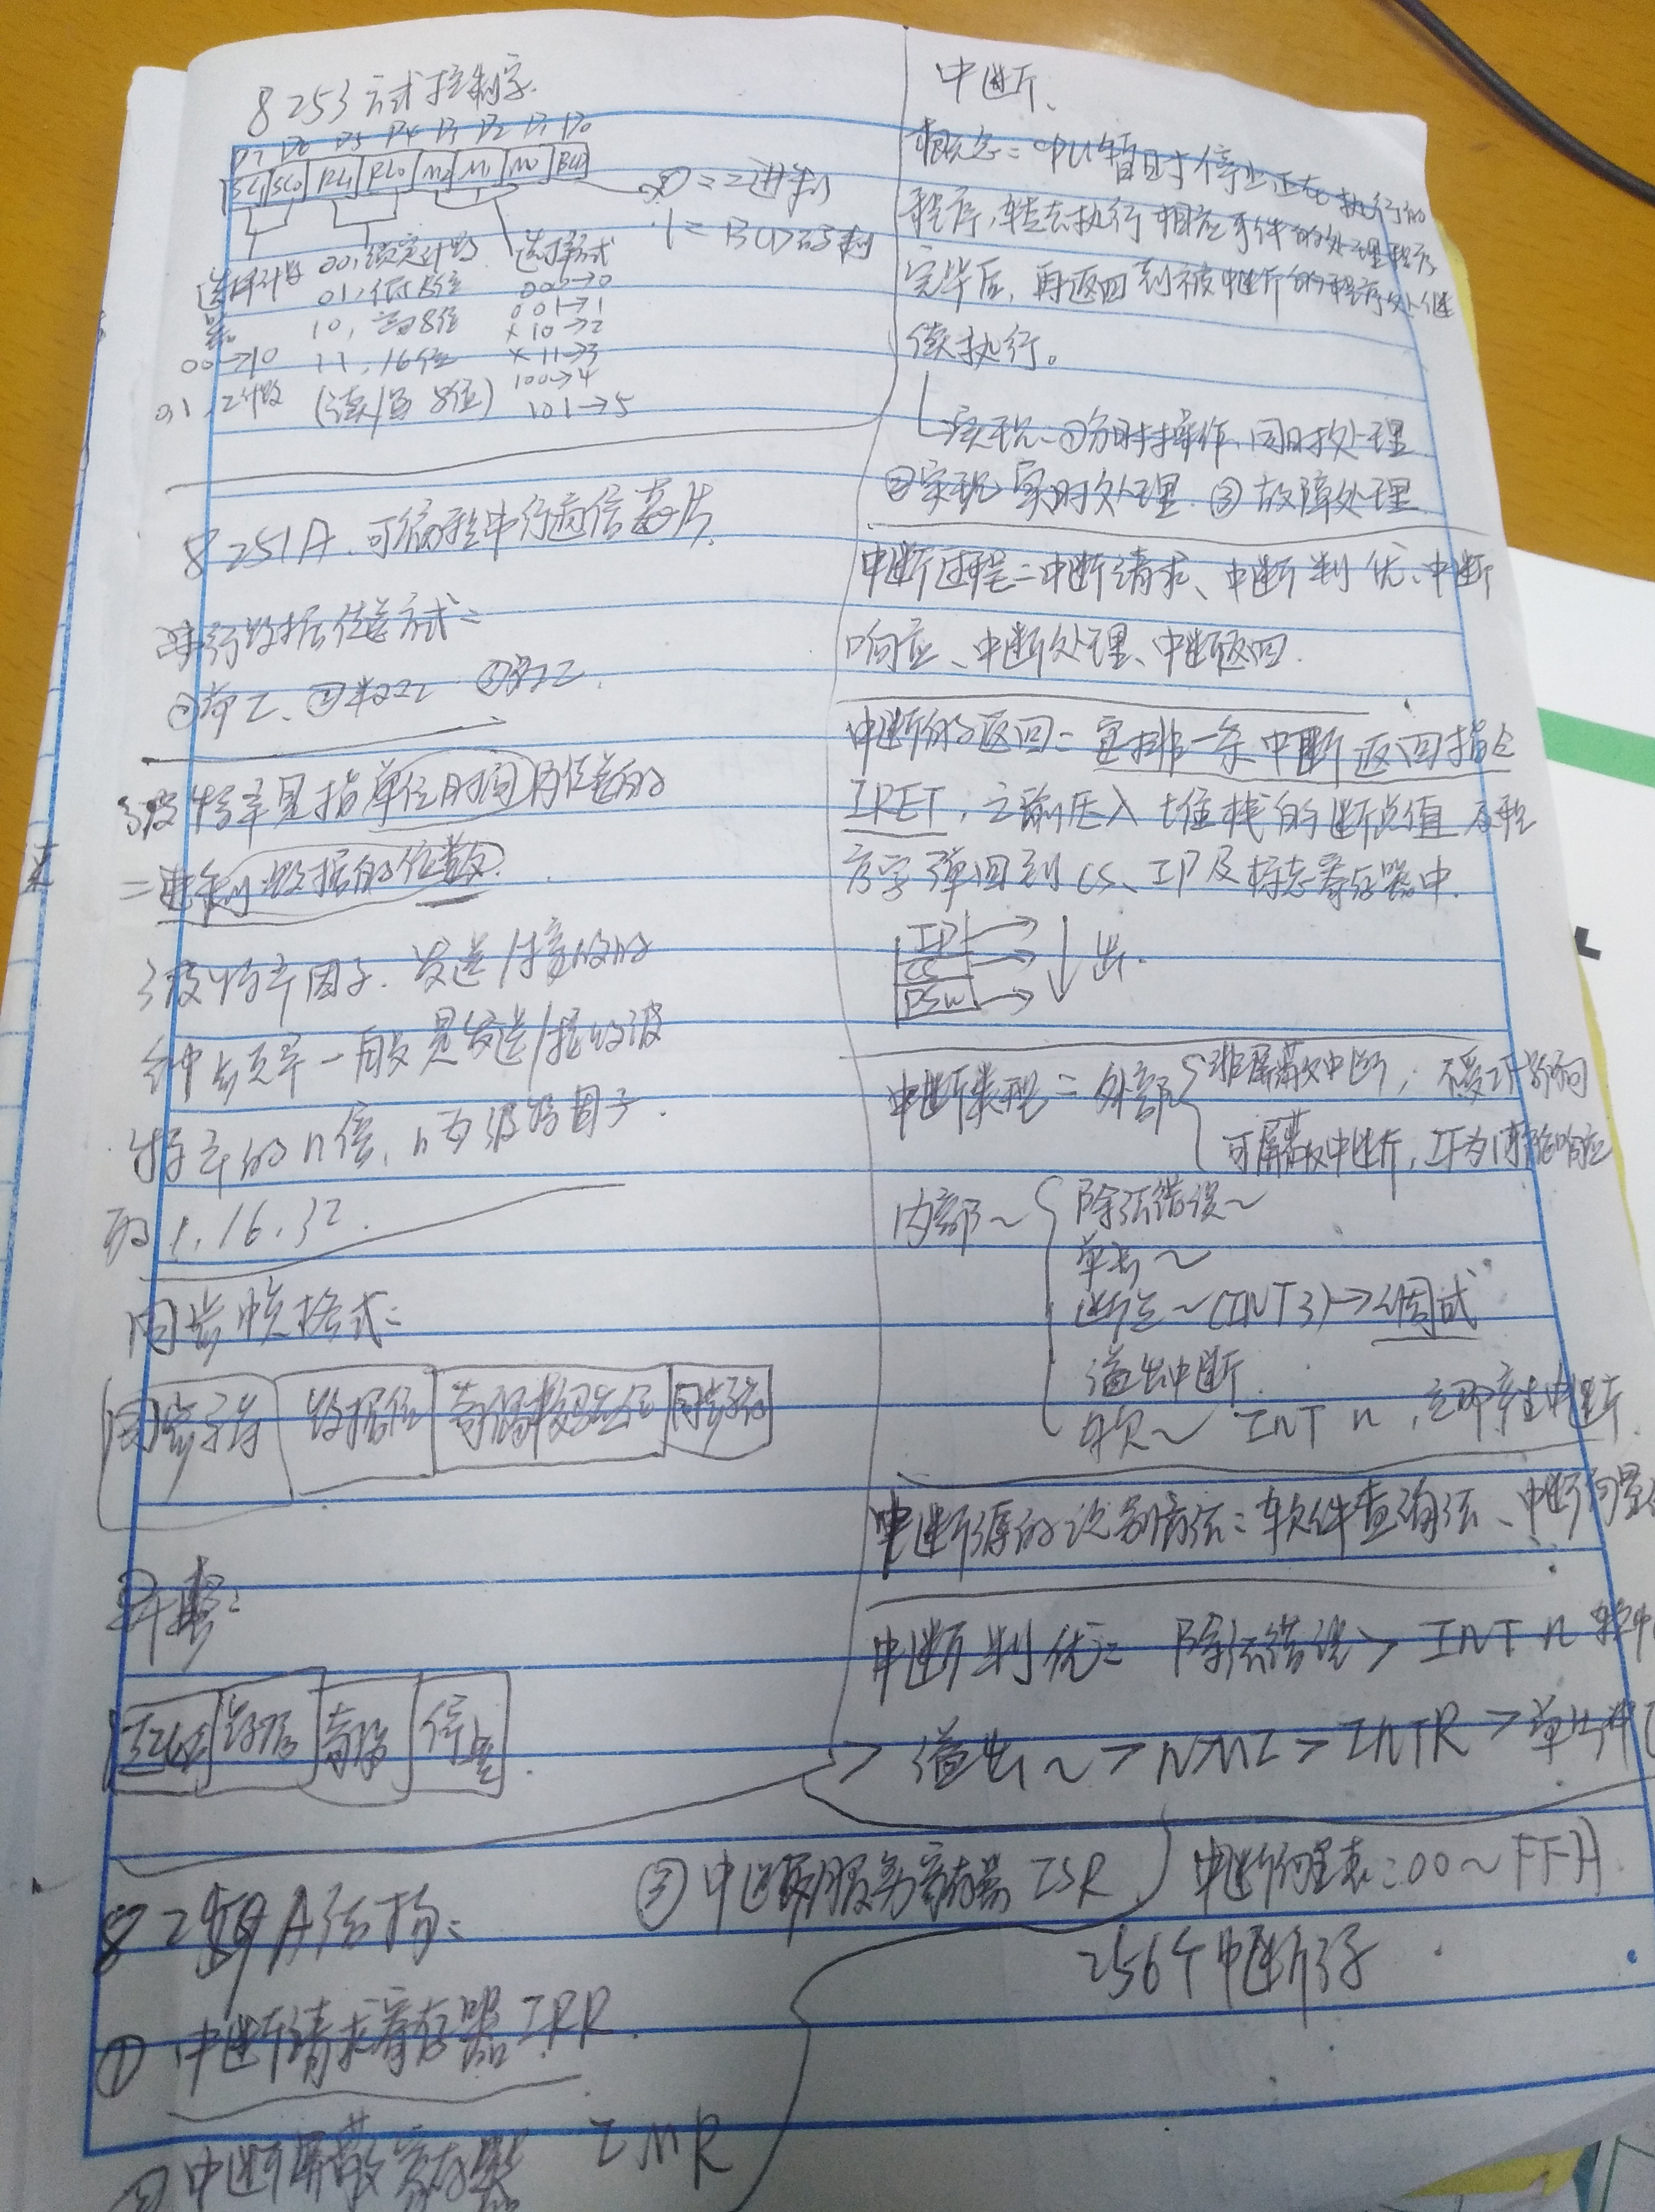 8253方式控制字.
D7 D6 D5 D4 D3 D2 D1 D0
SC1 SC0 RL1 RL0 M2 M1 M0 BCD
0=二进制
1=BCD码制
选择计数器
00→0
0,1
00,锁定计数
01,低8位
10,高8位
11,16位
(读/写8位)
选择方式
000→0
001→1
×10→2
×11→3
100→4
101→5
8251A.可编程串行通信芯片.
串行数据传送方式:
①单工、②半双工 ③双工.
波特率是指单位时间内传送的
二进制数据的位数.
波特率因子.发送/接收时
钟频率一般是发送/接收波
特率的n倍,n为波特因子.
为1.16.32.
同步帧格式:
同步字符 数据位 奇偶校验位 同步字符
异步:
起始 数据 奇偶 停止.
8259A结构:
①中断请求寄存器IRR.
②中断屏蔽寄存器 IMR
③中断服务寄存器ISR
中断、
概念=CPU暂时停止正在执行的
程序,转去执行相应事件的处理程序
完毕后,再返回到被中断的程序处继
续执行。
实现:①分时操作,同时处理
②实现实时处理.③故障处理
中断过程=中断请求、中断判优、中断
响应、中断处理、中断返回.
中断的返回:安排一条中断返回指令
IRET,之前压入堆栈的断点值及程
序字弹回到CS、IP及标志寄存器中.
IP
CS
PSW
出.
中断类型=外部
非屏蔽中断,不受IF影响
可屏蔽中断,IF为1才能响应
内部~
除法错误~
单步~
断点~(INT3)→调试
溢出中断.
软~ INT n,立即产生中断
中断源的识别方法:软件查询法、中断向量
中断判优: 除法错误> INT n
>溢出~>NMI>INTR>单步
中断向量表:00~FFH.
256个中断